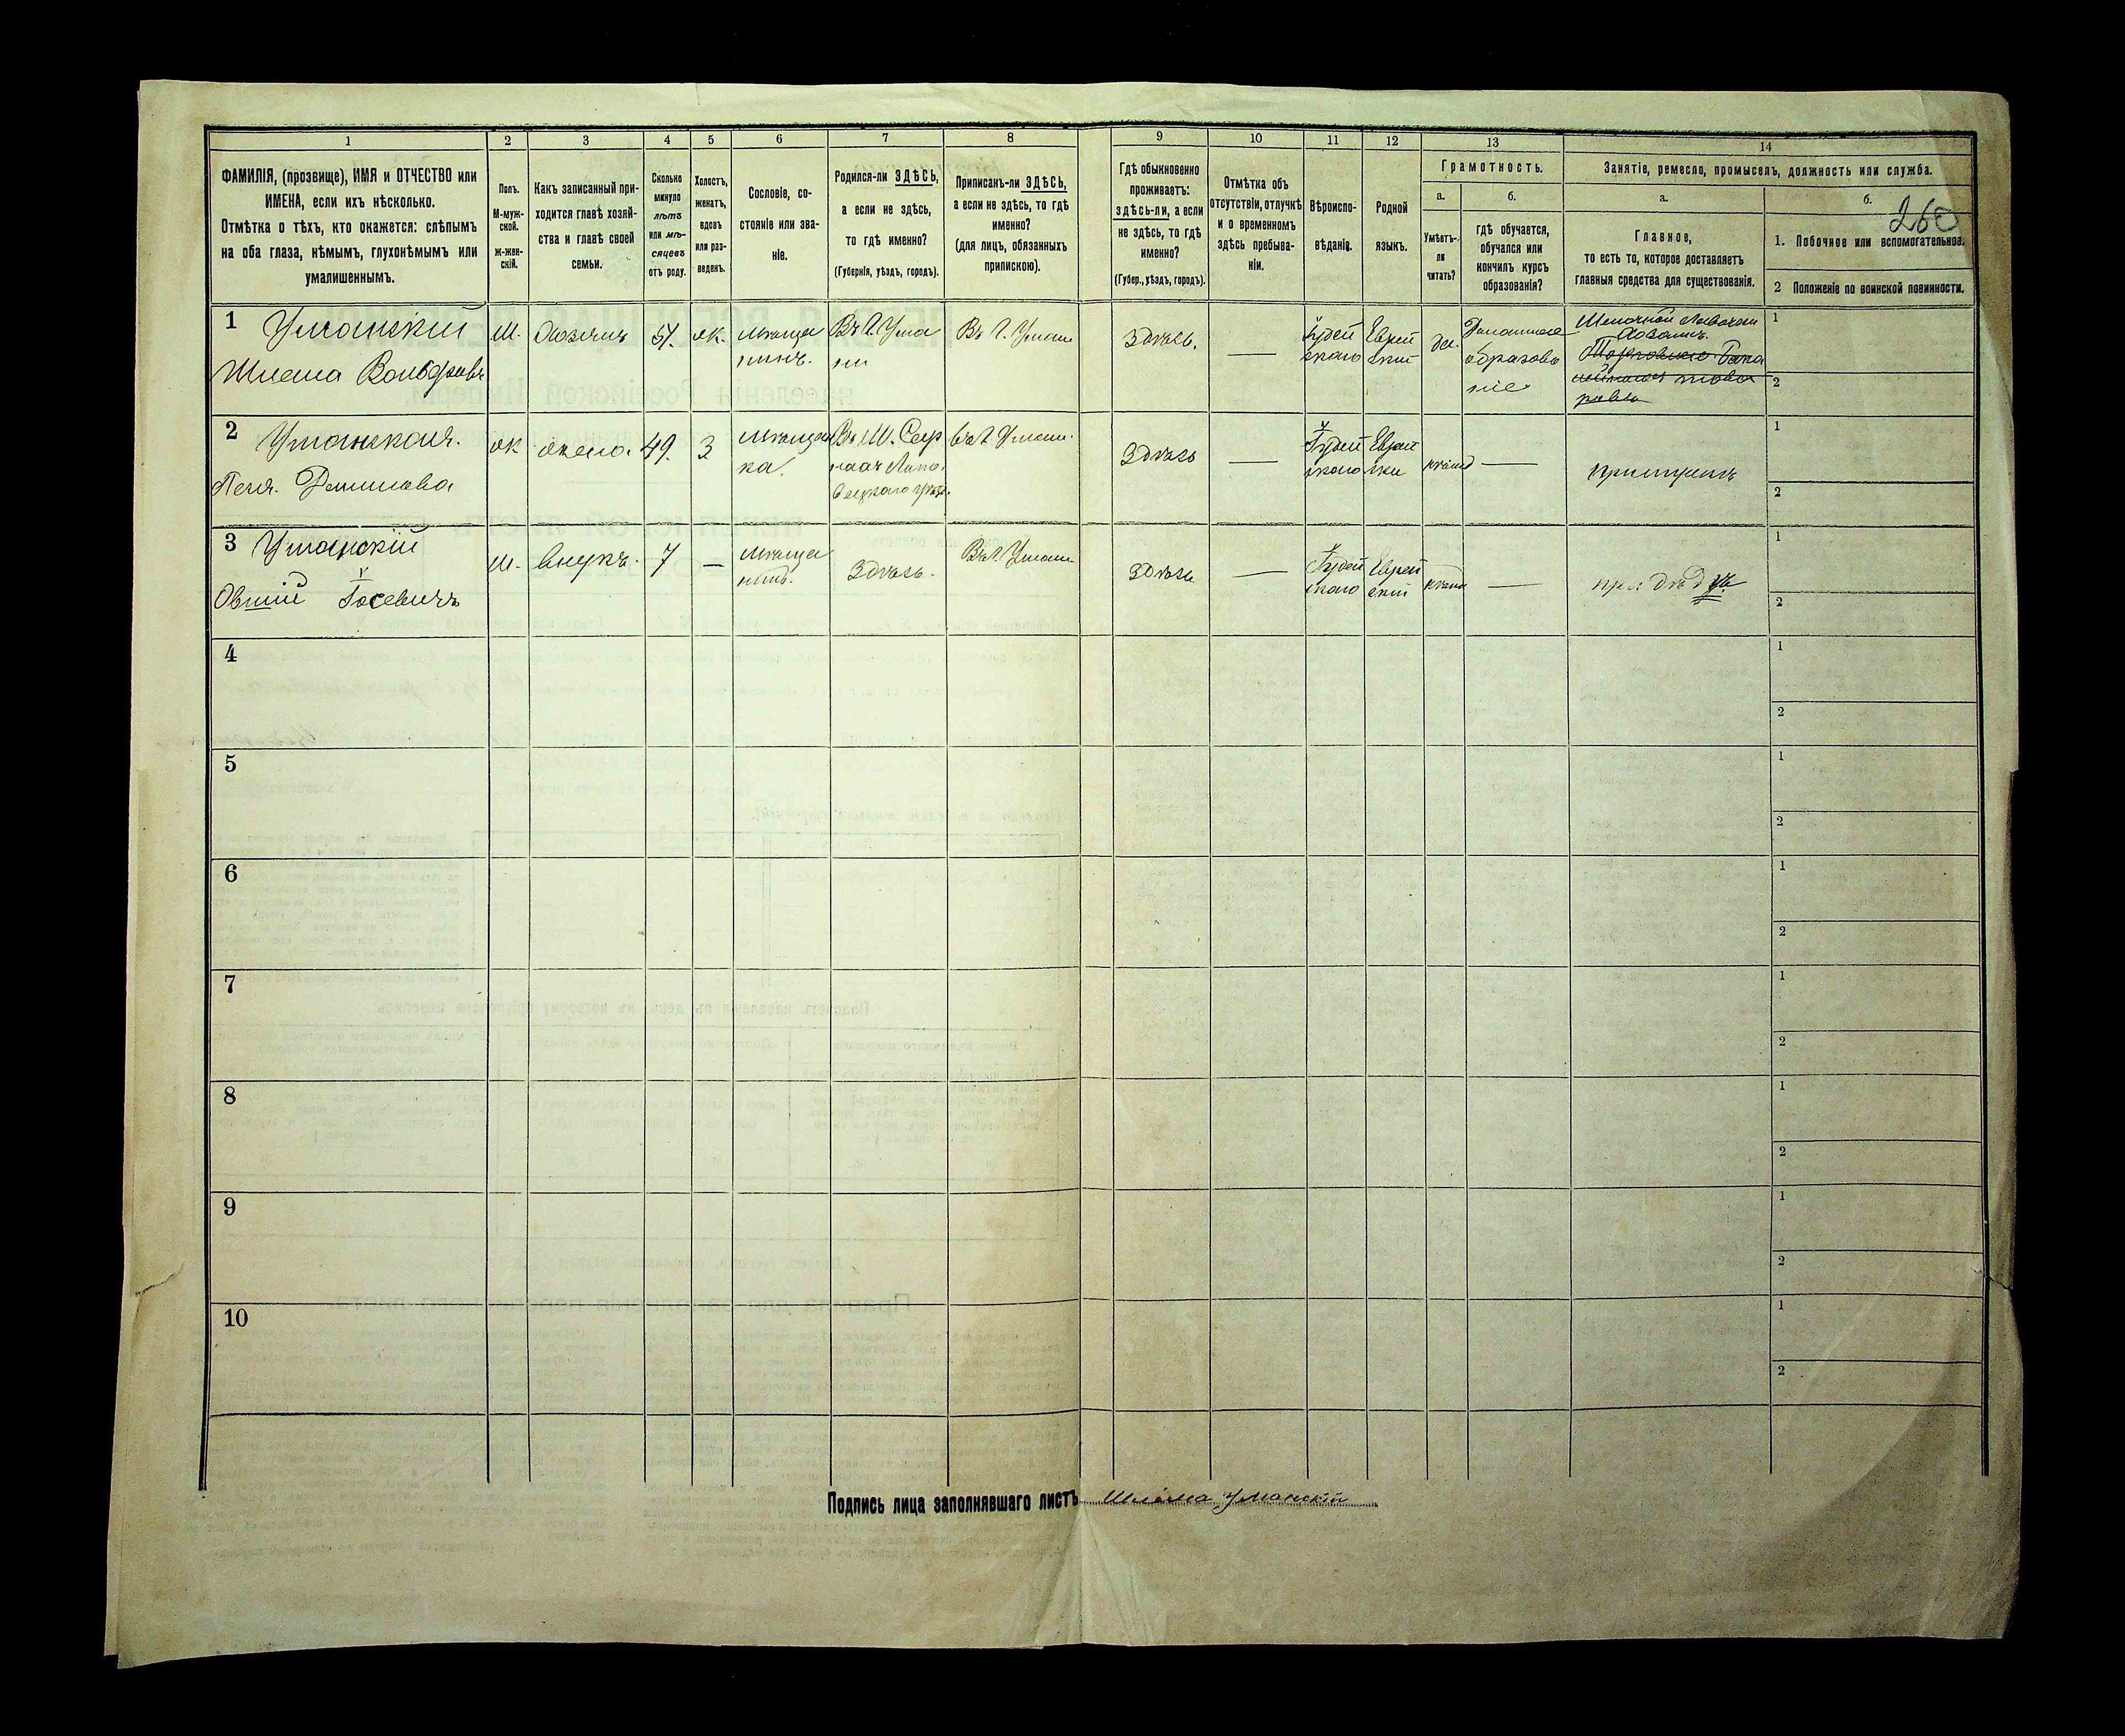 1 2 3 4 5 6 7 8 9 10 11 12 13 14
ФАМИЛІЯ, (прозвище), ИМЯ и ОТЧЕСТВО или
ИМЕНА, если ихъ нѣсколько.
Отмѣтка о тѣхъ, кто окажется: слѣпымъ
на оба глаза, нѣмымъ, глухонѣмымъ или
умалишеннымъ.
Полъ.
М-муж-
ской.
ж-жен-
скій.
Какъ записанный при-
ходится главѣ хозяй-
ства и главѣ своей
семьи.
Сколько
минуло
лѣтъ
или мѣ-
сяцевъ
отъ роду.
Холостъ,
женатъ,
вдовъ
или раз-
веденъ.
Сословіе, со-
стояніе или зва-
ніе.
Родился-ли ЗДѢСЬ,
а если не здѣсь,
то гдѣ именно?
(Губернія, уѣздъ, городъ).
Приписанъ-ли ЗДѢСЬ,
а если не здѣсь, то гдѣ
именно?
(для лицъ, обязанныхъ
припискою).
Гдѣ обыкновенно
проживаетъ:
здѣсь-ли, а если
не здѣсь, то гдѣ
именно?
(Губер., уѣздъ, городъ).
Отмѣтка объ
отсутствіи, отлучкѣ
и о временномъ
здѣсь пребыва-
ніи.
Вѣроиспо-
вѣданіе.
Родной
языкъ.
Грамотность.
а.
Умѣетъ-
ли
читать?
б.
гдѣ обучается,
обучался или
кончилъ курсъ
образованія?
Занятіе, ремесло, промыселъ, должность или служба.
а.
Главное,
то есть то, которое доставляетъ
главныя средства для существованія.
б.
260
1. Побочное или вспомогательное.
2 Положеніе по воинской повинности.
1 Уманскій
Шлема Вольфовъ
М.
Хозяинъ
51.
ж.
мѣща
нинъ.
Въ г. Ума
ни
Въ г. Умани
Здѣсь.
—
Іудей
скаго
Еврей
скій
да.
Домашнее
образова
ніе
Мелочной лавочки
Хозяинъ.
Торговщикъ Бака
лейнымъ това
ромъ
1
2
2 Уманская.
Песя.
ж
жена.
49.
З
мѣщан
ка.
Въ г. Умани.
Здѣсь
—
Іудей
скаго
Еврей
ски
—
1
2
3 Уманскій
Овшій Іосевичъ
М.
внукъ.
7
—
мѣща
нинъ.
Здѣсь.
Въ г. Умани
Здѣсь
—
Іудей
скаго
Еврей
скій
—
при дѣдѣ
1
2
4
1
2
5
1
2
6
1
2
7
1
2
8
1
2
9
1
2
10
1
2
Подпись лица заполнявшаго листъ Шлема Уманскій